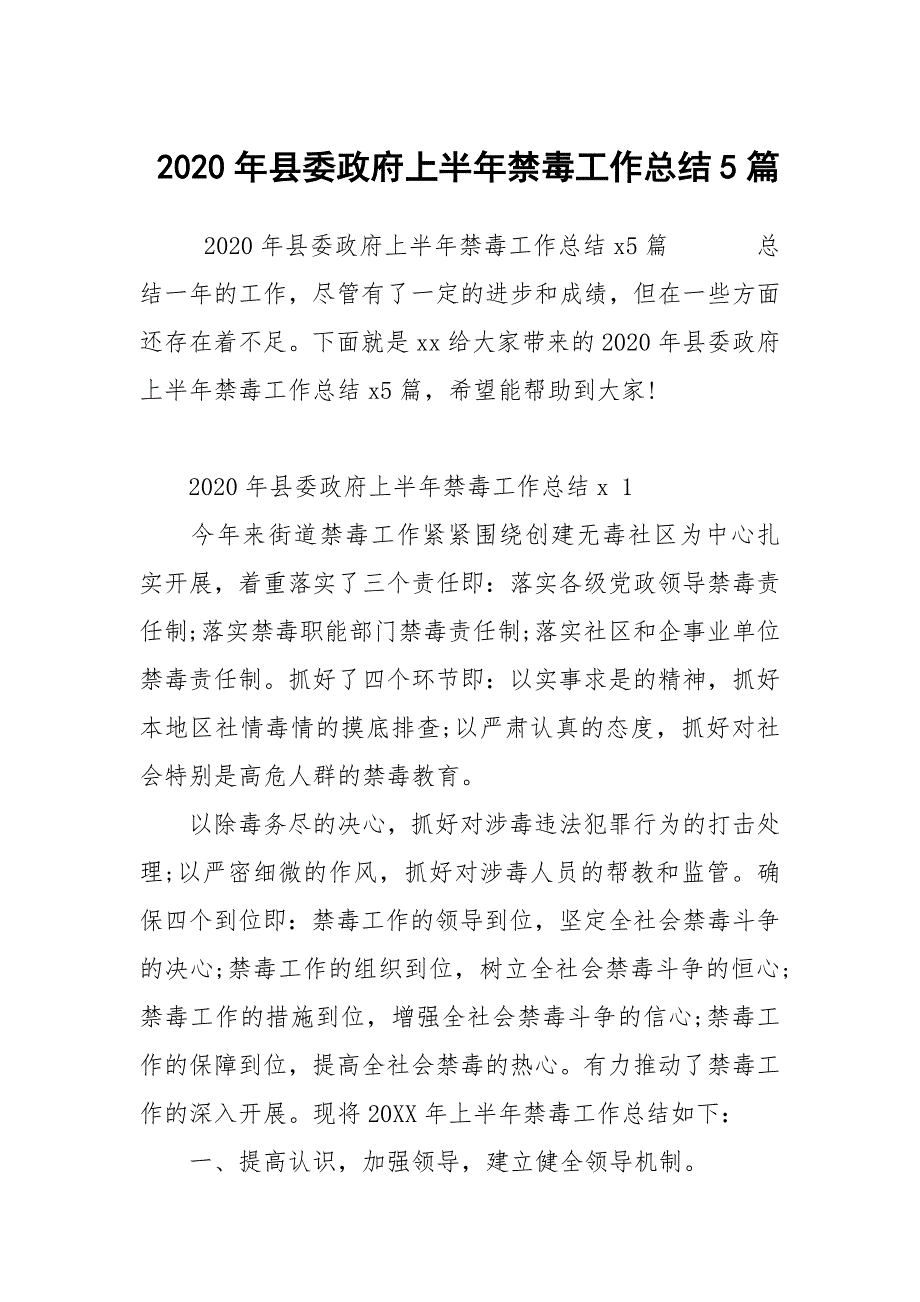 2020年县委政府上半年禁毒工作总结5篇
2020年县委政府上半年禁毒工作总结x5篇 总
结一年的工作，尽管有了一定的进步和成绩，但在一些方面
还存在着不足。下面就是xx给大家带来的2020年县委政府
上半年禁毒工作总结x5篇，希望能帮助到大家!
2020年县委政府上半年禁毒工作总结x 1
今年来街道禁毒工作紧紧围绕创建无毒社区为中心扎
实开展，着重落实了三个责任即：落实各级党政领导禁毒责
任制;落实禁毒职能部门禁毒责任制;落实社区和企事业单位
禁毒责任制。抓好了四个环节即：以实事求是的精神，抓好
本地区社情毒情的摸底排查;以严肃认真的态度，抓好对社
会特别是高危人群的禁毒教育。
以除毒务尽的决心，抓好对涉毒违法犯罪行为的打击处
理;以严密细微的作风，抓好对涉毒人员的帮教和监管。确
保四个到位即：禁毒工作的领导到位，坚定全社会禁毒斗争
的决心;禁毒工作的组织到位，树立全社会禁毒斗争的恒心;
禁毒工作的措施到位，增强全社会禁毒斗争的信心;禁毒工
作的保障到位，提高全社会禁毒的热心。有力推动了禁毒工
作的深入开展。现将20XX年上半年禁毒工作总结如下：
一、提高认识，加强领导，建立健全领导机制。